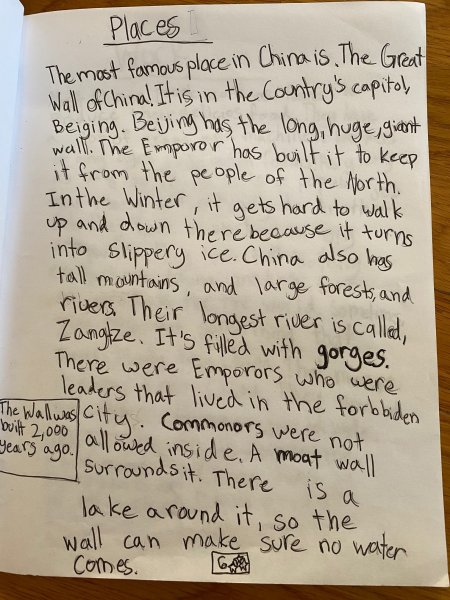 Places
The most famous place in China is. The Great
Wall of China! It is in the Country's capitol,
Beiging. Beijing has the long, huge, giant
wall. The Emporor has built it to keep
it from the people of the North.
In the Winter, it gets hard to walk
up and down there because it turns
into slippery ice. China also has
tall mountains, and large forests, and
rivers. Their longest river is called,
Zangtze. It's filled with gorges.
There were Emporors who were
leaders that lived in the forbbiden
City. Commonors were not
allowed inside. A moat wall
surrounds it. There is a
lake around it, so the
wall can make sure no water
comes.
The Wall was
built 2,000
years ago.
6